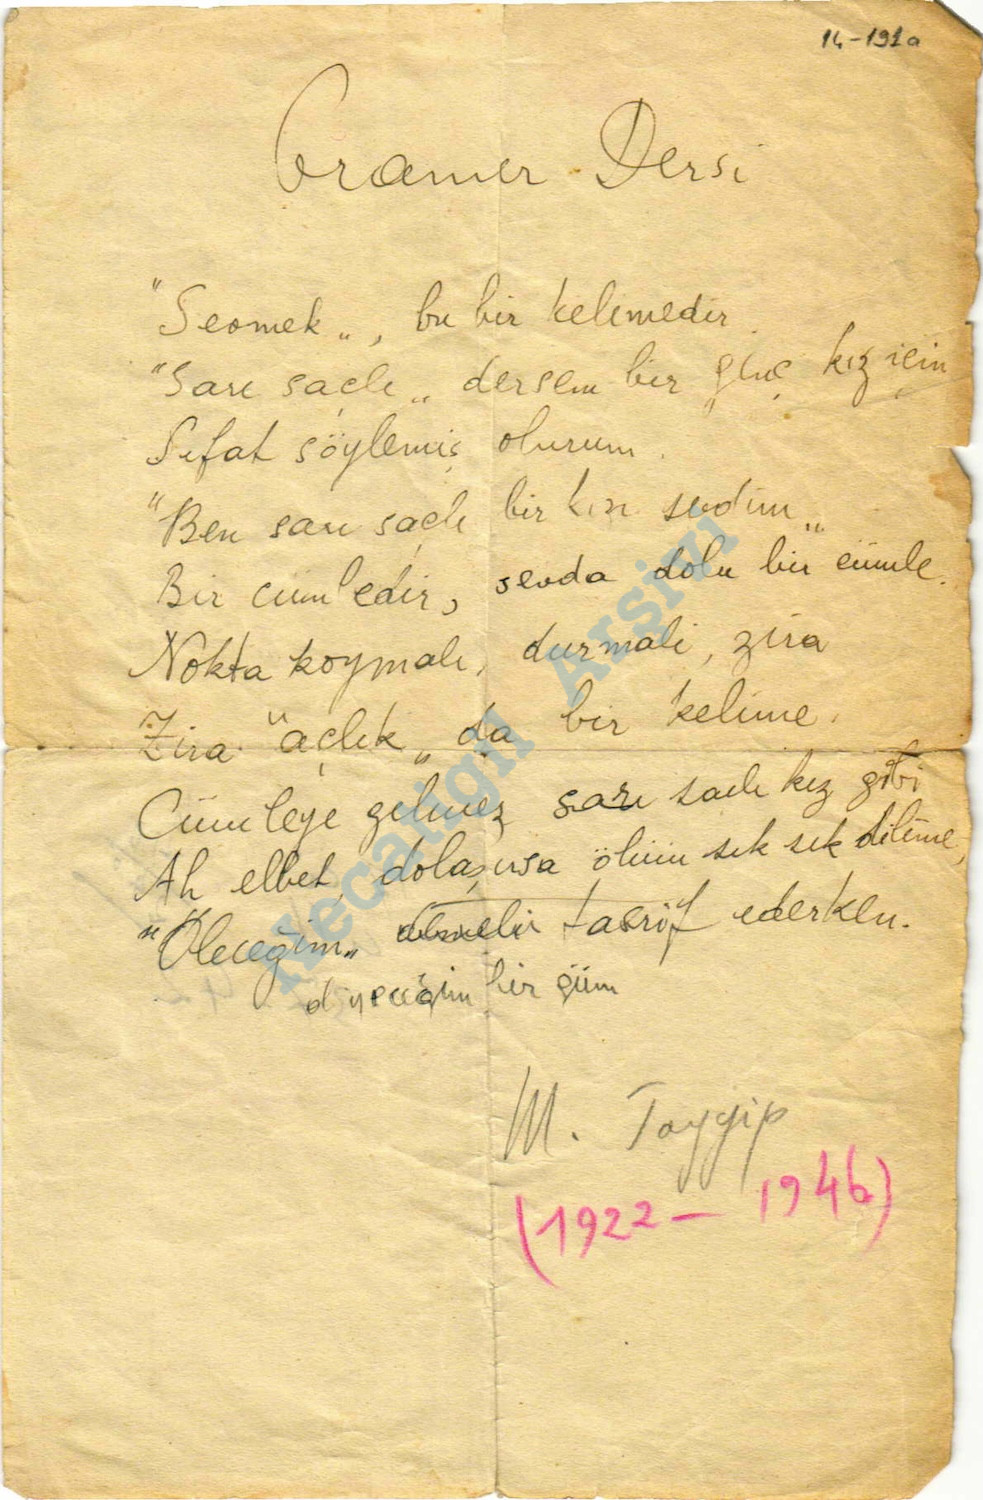 14-191a
Gramer Dersi
"Sevmek„, bu bir kelimedir.
"Sarı saçlı„ dersem bir genç kız için
Sıfat söylemiş olurum.
"Ben sarı saçlı bir kız sevdim„
Bir cümledir, sevda dolu bir cümle.
Nokta koymalı, durmalı, zira
Zira "açlık„ da bir kelime.
Cümleye gelmez sarı saçlı kız gibi
Ah elbet, dolaşırsa ölüm sık sık dilime,
"Öleceğim„ tasrif ederken.
diyeceğim bir gün
M. Tayyip
(1922 - 1946)
Necatigil Arşivi